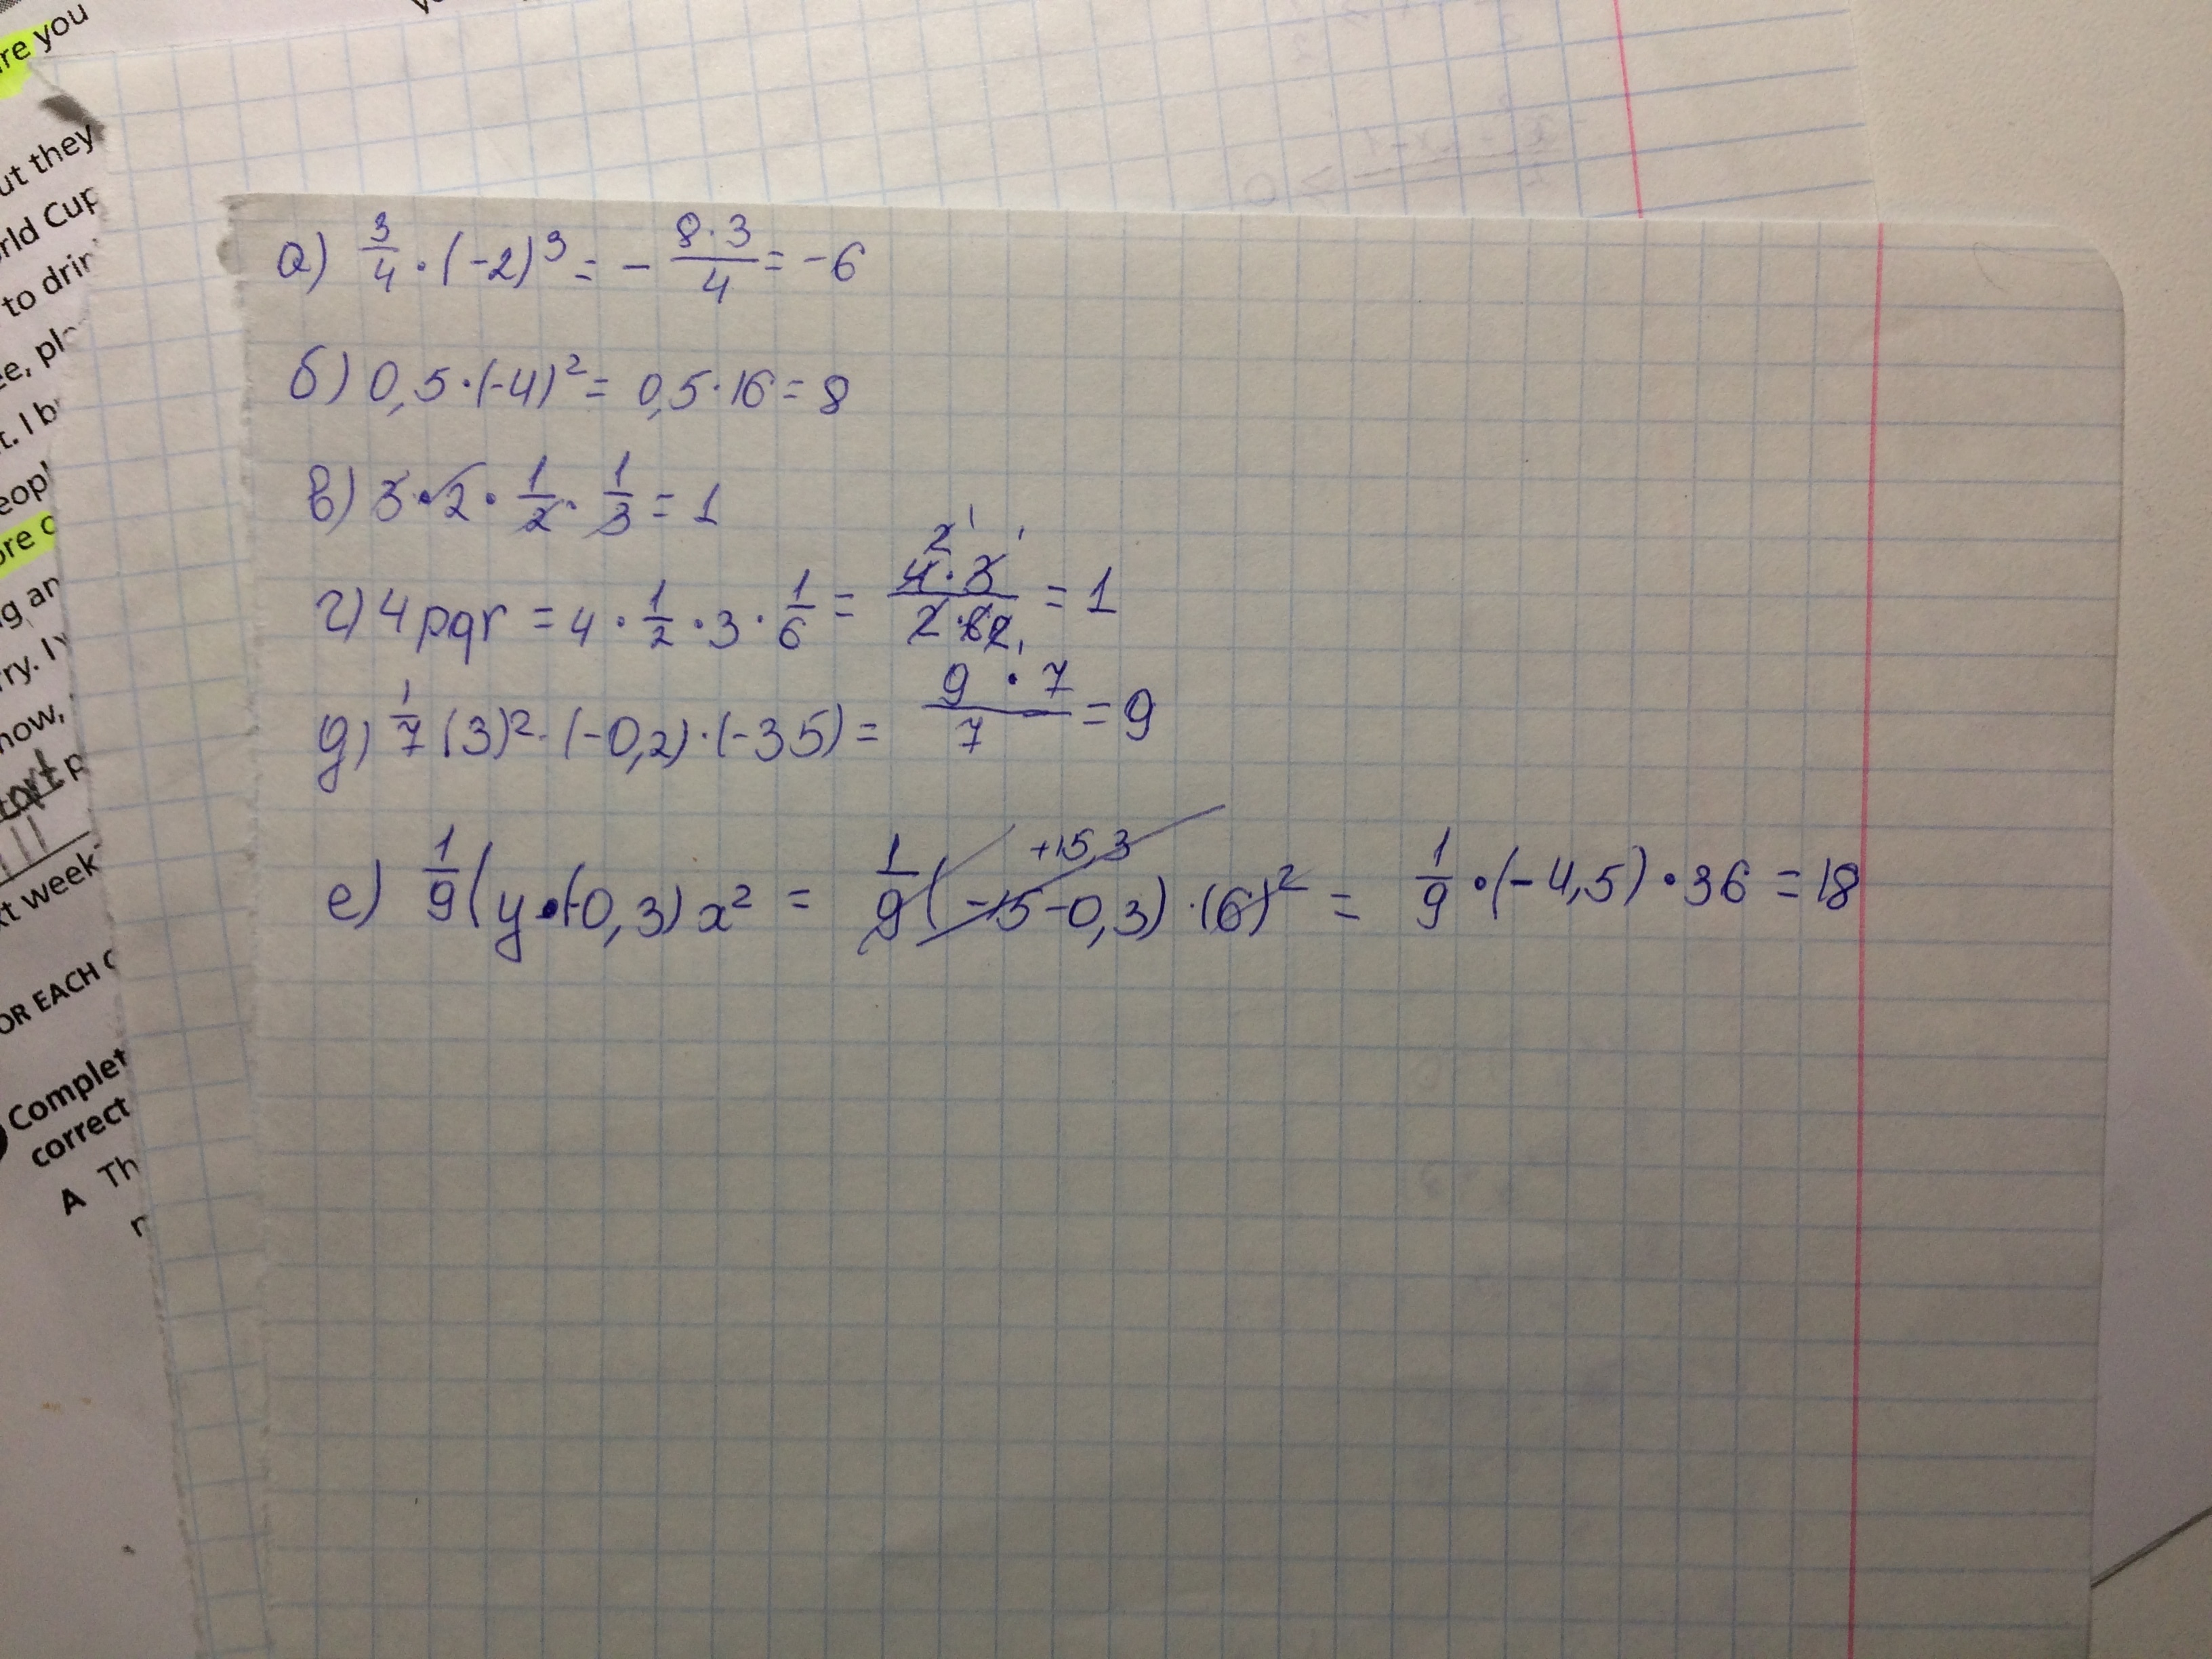 re you
ut they
rld Cup
to drin
ee, pl
t. I b
eopl
ore c
g an
ry. I
now,
xt week
OR EACH
Complet
correct
A Th
а) 3/4 · (-2)³ = - 8·3/4 = -6
б) 0,5·(-4)² = 0,5·16 = 8
в) 3·2·1/2·1/3 = 1
г) 4pqr = 4·1/2·3·1/6 = 4·3/2·2 = 1
д) 1/7 (3)²·(-0,2)·(-35) = 9·7/7 = 9
е) 1/9(y·(-0,3)x² = 1/9(-15-0,3)·(6)² = 1/9·(-4,5)·36 = 18
+15,3